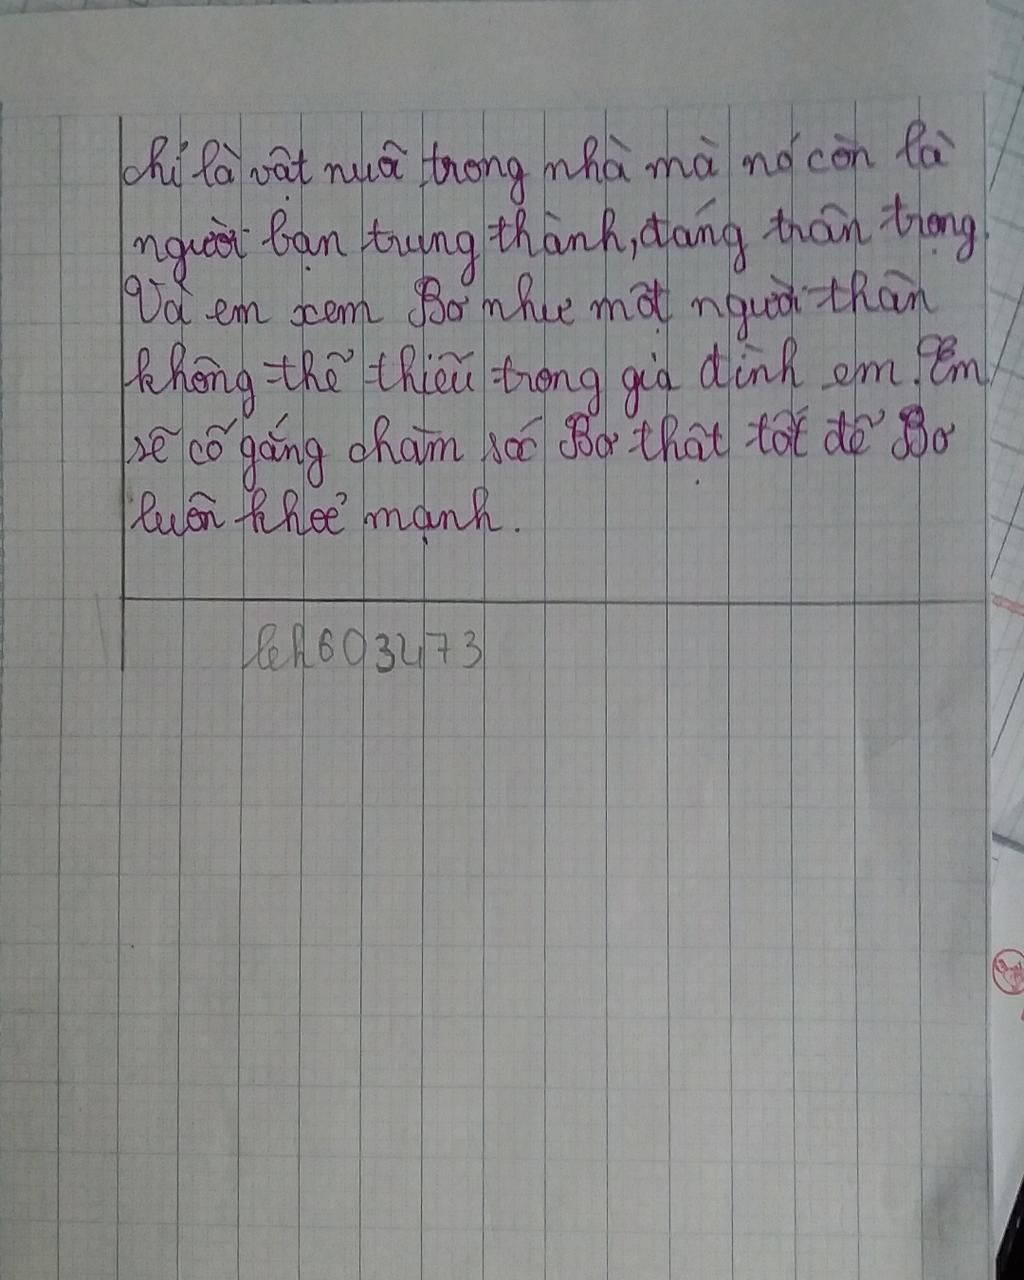 chỉ là vật nuô trong nhà mà nó còn là
người bạn trung thành, đáng trân trọng.
Và em xem Bơ như một người thân
không thể thiếu trong gia đình em. Em
sẽ cố gắng chăm sóc Bơ thật tốt để Bơ
luôn khoẻ mạnh.
leh603473